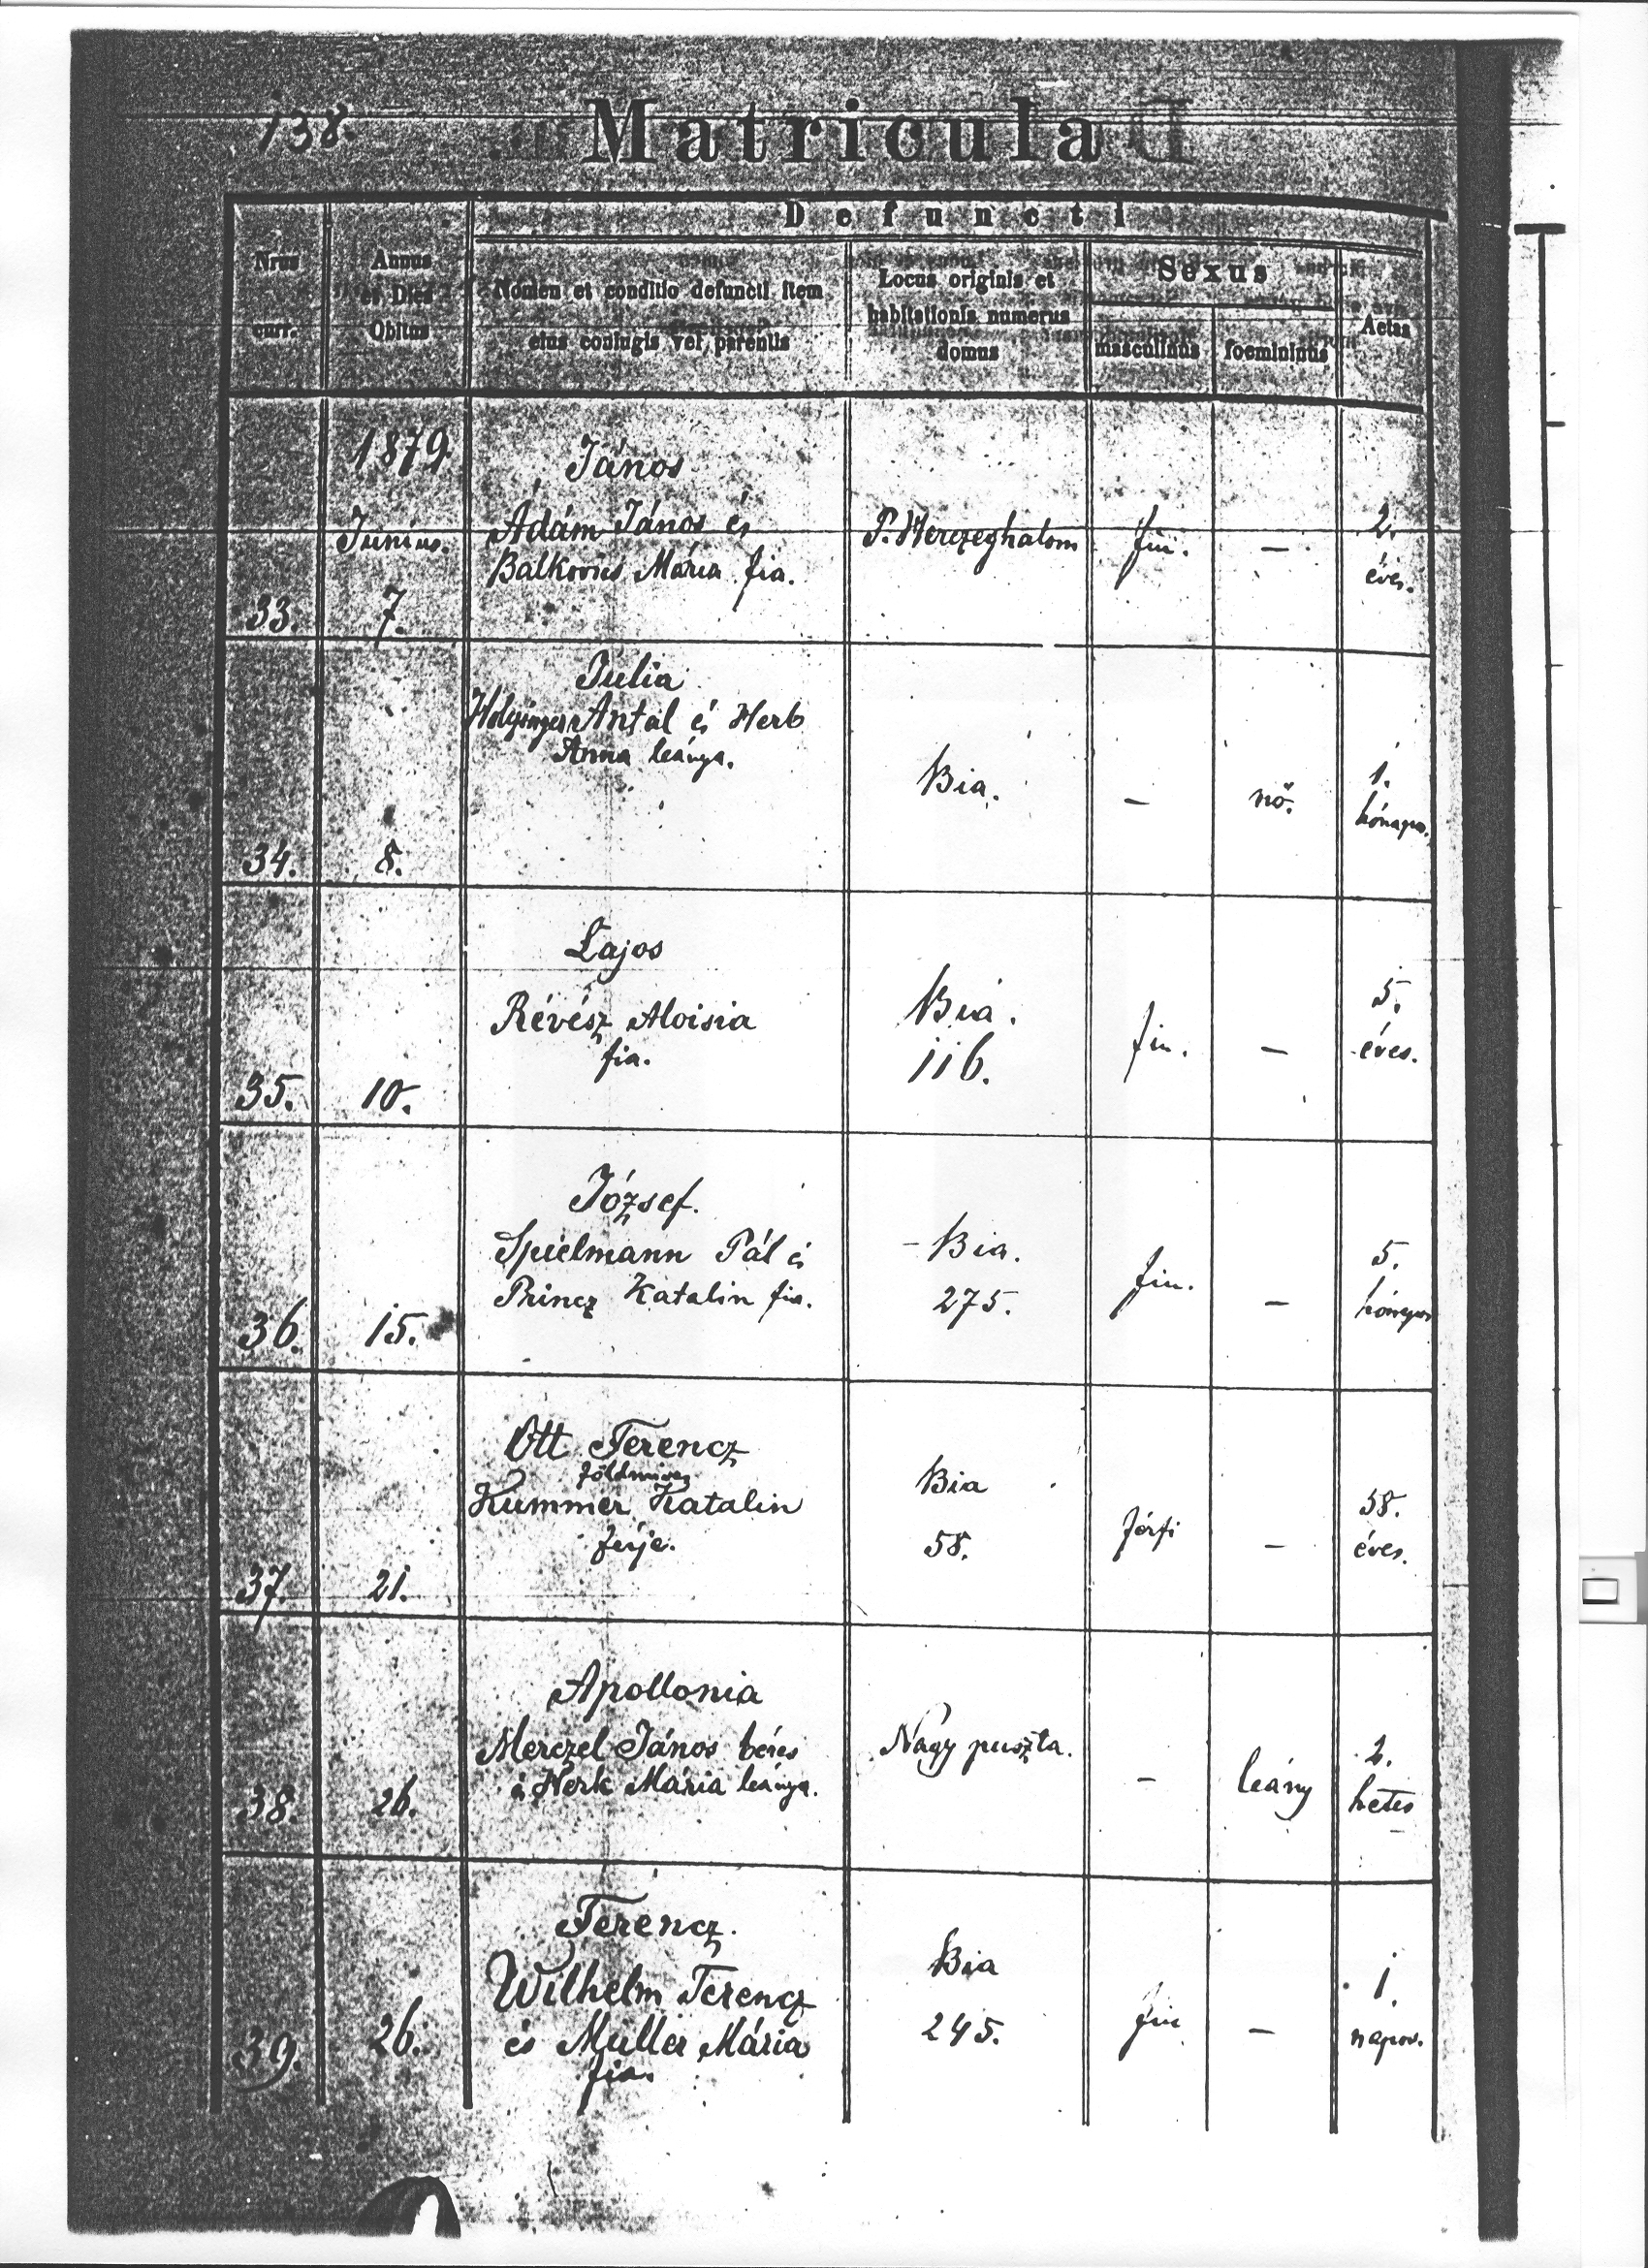 138.
Matricula
Defuncti
Nrus
curr.
Annus
et Dies
Obitus
Nomen et conditio defuncti item
eius coniugis vel parentis
Locus originis et
habitationis numerus
domus
Sexus
masculinus
foemininus
Aetas
1879
Június.
7.
33.
János
Ádám János és
Balkovics Mária fia.
P. Herczeghalom
fiu.
—
2.
éves.
34.
8.
Julia
Antal és Herb
Anna leánya.
Bia.
—
nő.
1.
hónapos.
35.
10.
Lajos
Révész Aloisia
fia.
Bia.
116.
fiu.
—
5.
éves.
36.
15.
József.
Spielmann Pál és
Princz Katalin fia.
Bia.
275.
fiu.
—
5.
hónapos
37.
21.
Ott Ferencz
földmives
Kummer Katalin
férje.
Bia
58.
férfi
—
58.
éves.
38.
26.
Apollonia
Merczel János béres
és Herk Mária leánya.
Nagy puszta.
—
leány
2.
hetes
39.
26.
Ferencz.
Wilhelm Ferencz
és Muller Mária
fia.
Bia
245.
fiu
—
1.
napos.